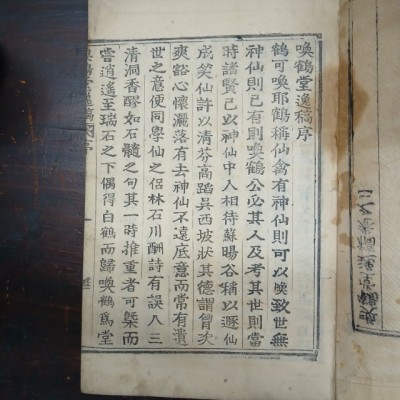 喚鶴堂逸稿序
鶴可喚耶鶴稱仙禽有神仙則可以喚致世無
神仙則已有則喚鶴公必其人及考其世則當
時諸賢己以神仙中人相待蘇暘谷稱以遯仙
成笑仙許以清芬高蹈吳西坡狀其德謂胷次
爽豁心懷灑落有去神仙不遠底意而常有遺
世之意便同學仙之侶林石川酬詩有誤入三
清洞香醪如石髓之句其一時推重者可槩而
嘗逍遙至瑞石之下偶得白鶴而歸喚鶴爲堂
喚鶴堂逸稿 序